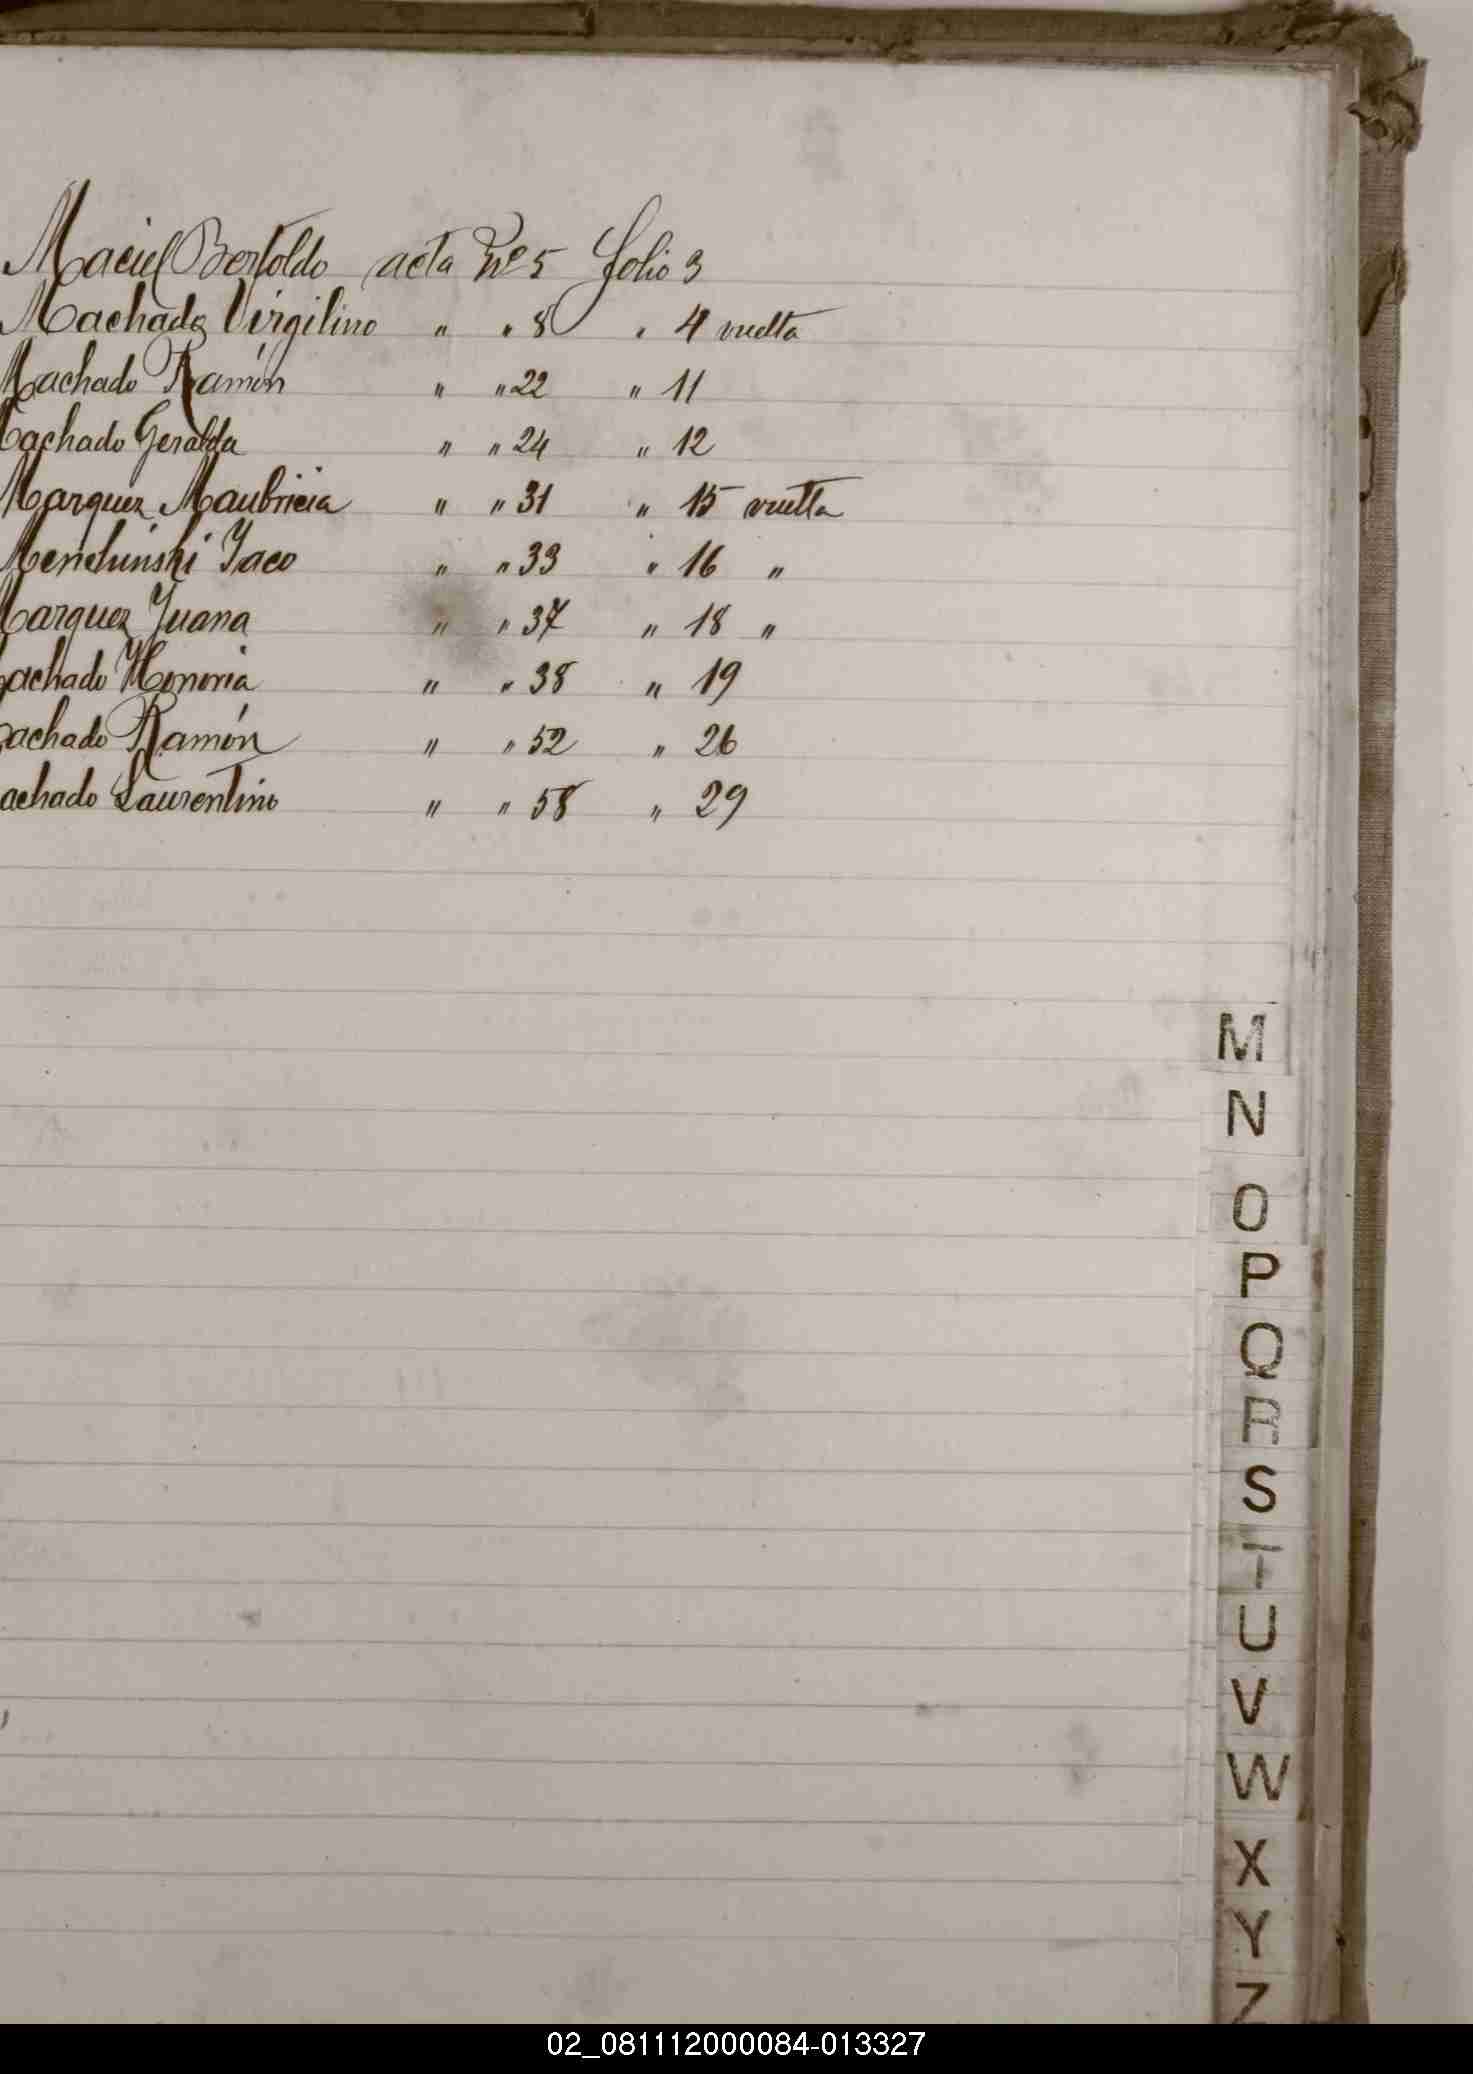 Maciel Bertoldo acta Nº 5 folio 3
Machado Virgilino " " 8 " 4 vuelta
Machado Ramón " " 22 " 11
Machado Geralda " " 24 " 12
Marquez Maubricia " " 31 " 15 vuelta
Menchinski Jaco " " 33 " 16 "
Marquez Juana " " 37 " 18 "
achado Honoria " " 38 " 19
achado Ramón " " 52 " 26
achado Laurentino " " 58 " 29
M
N
O
P
Q
R
S
T
U
V
W
X
Y
Z
02_081112000084-013327